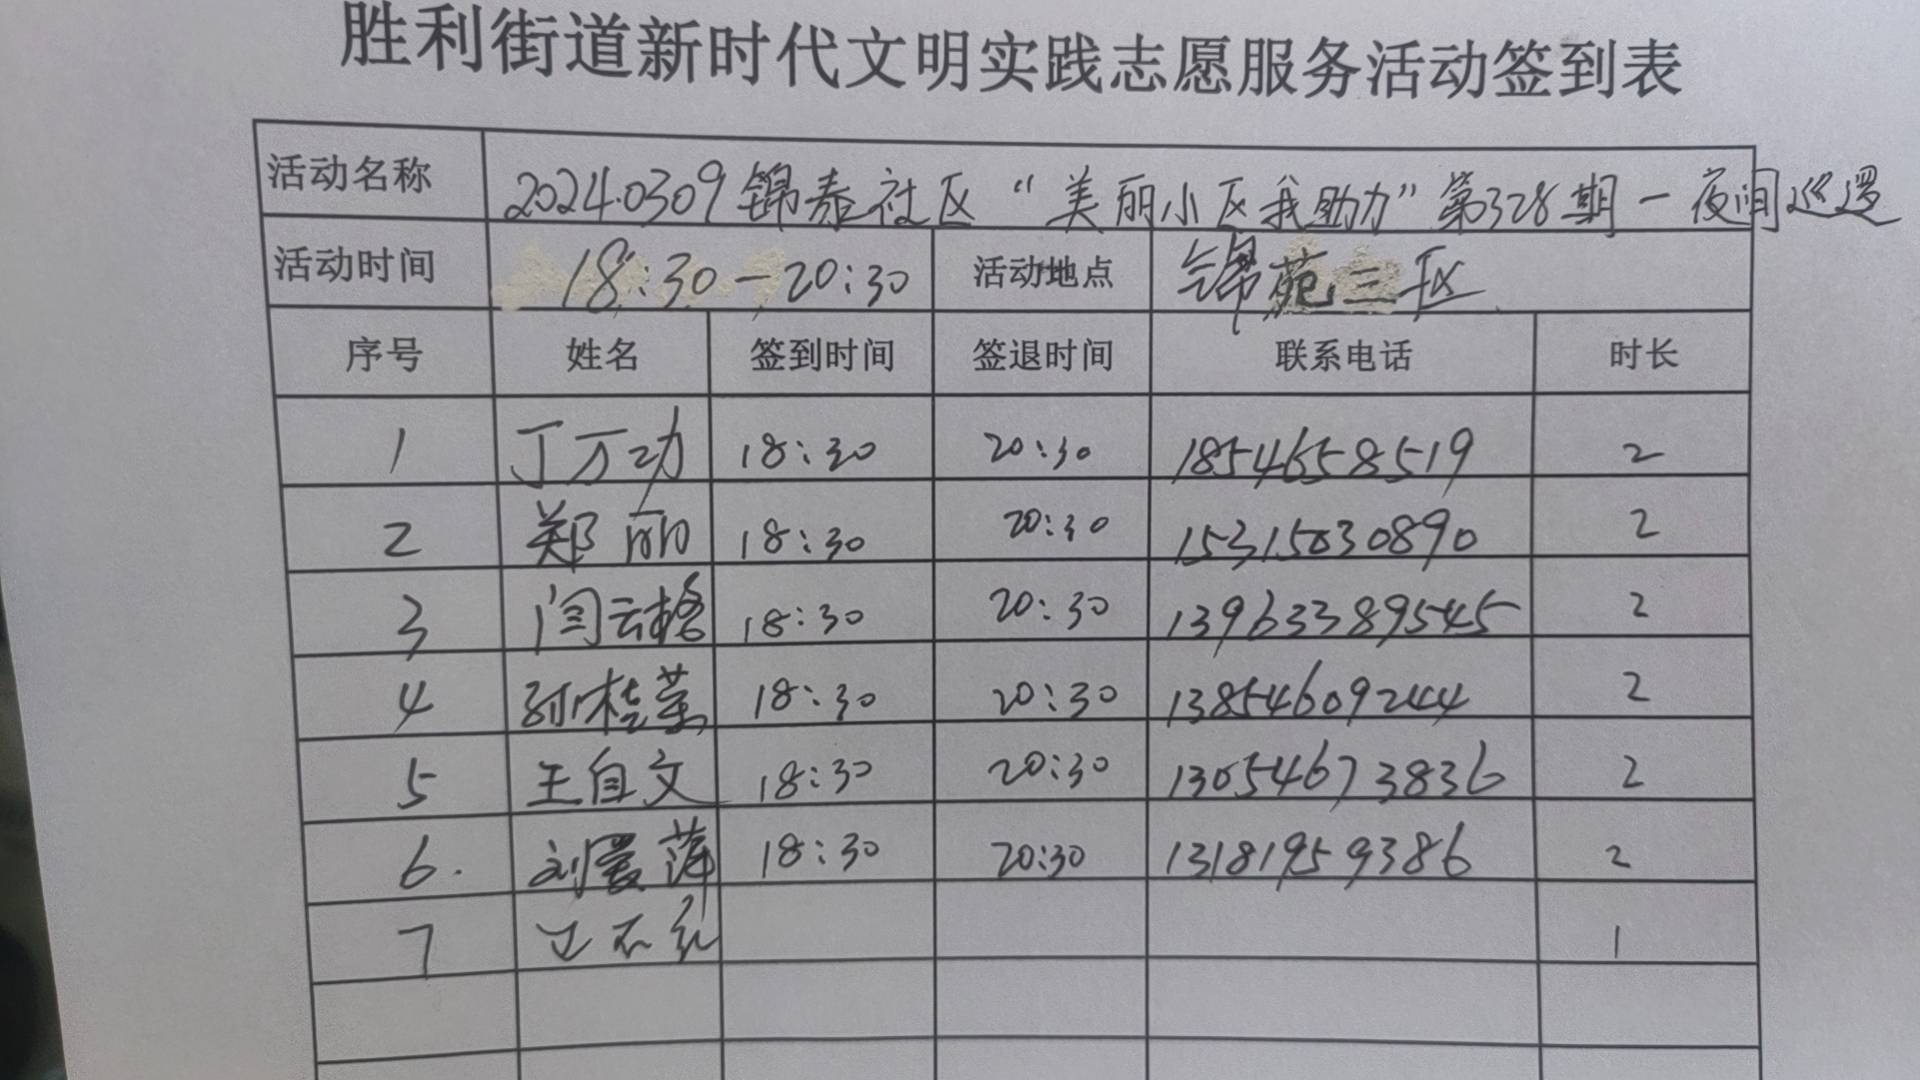 胜利街道新时代文明实践志愿服务活动签到表
活动名称 20240309锦泰社区“美丽小区我助力”第328期-夜间巡逻
活动时间 18:30-20:30 活动地点 锦苑三区
序号 姓名 签到时间 签退时间 联系电话 时长
1 丁万功 18:30 20:30 18546658519 2
2 郑丽 18:30 20:30 15315030890 2
3 闫云格 18:30 20:30 13963389545 2
4 孙桂英 18:30 20:30 13854609244 2
5 王自文 18:30 20:30 13054673836 2
6. 刘爱萍 18:30 20:30 13181959386 2
7 1